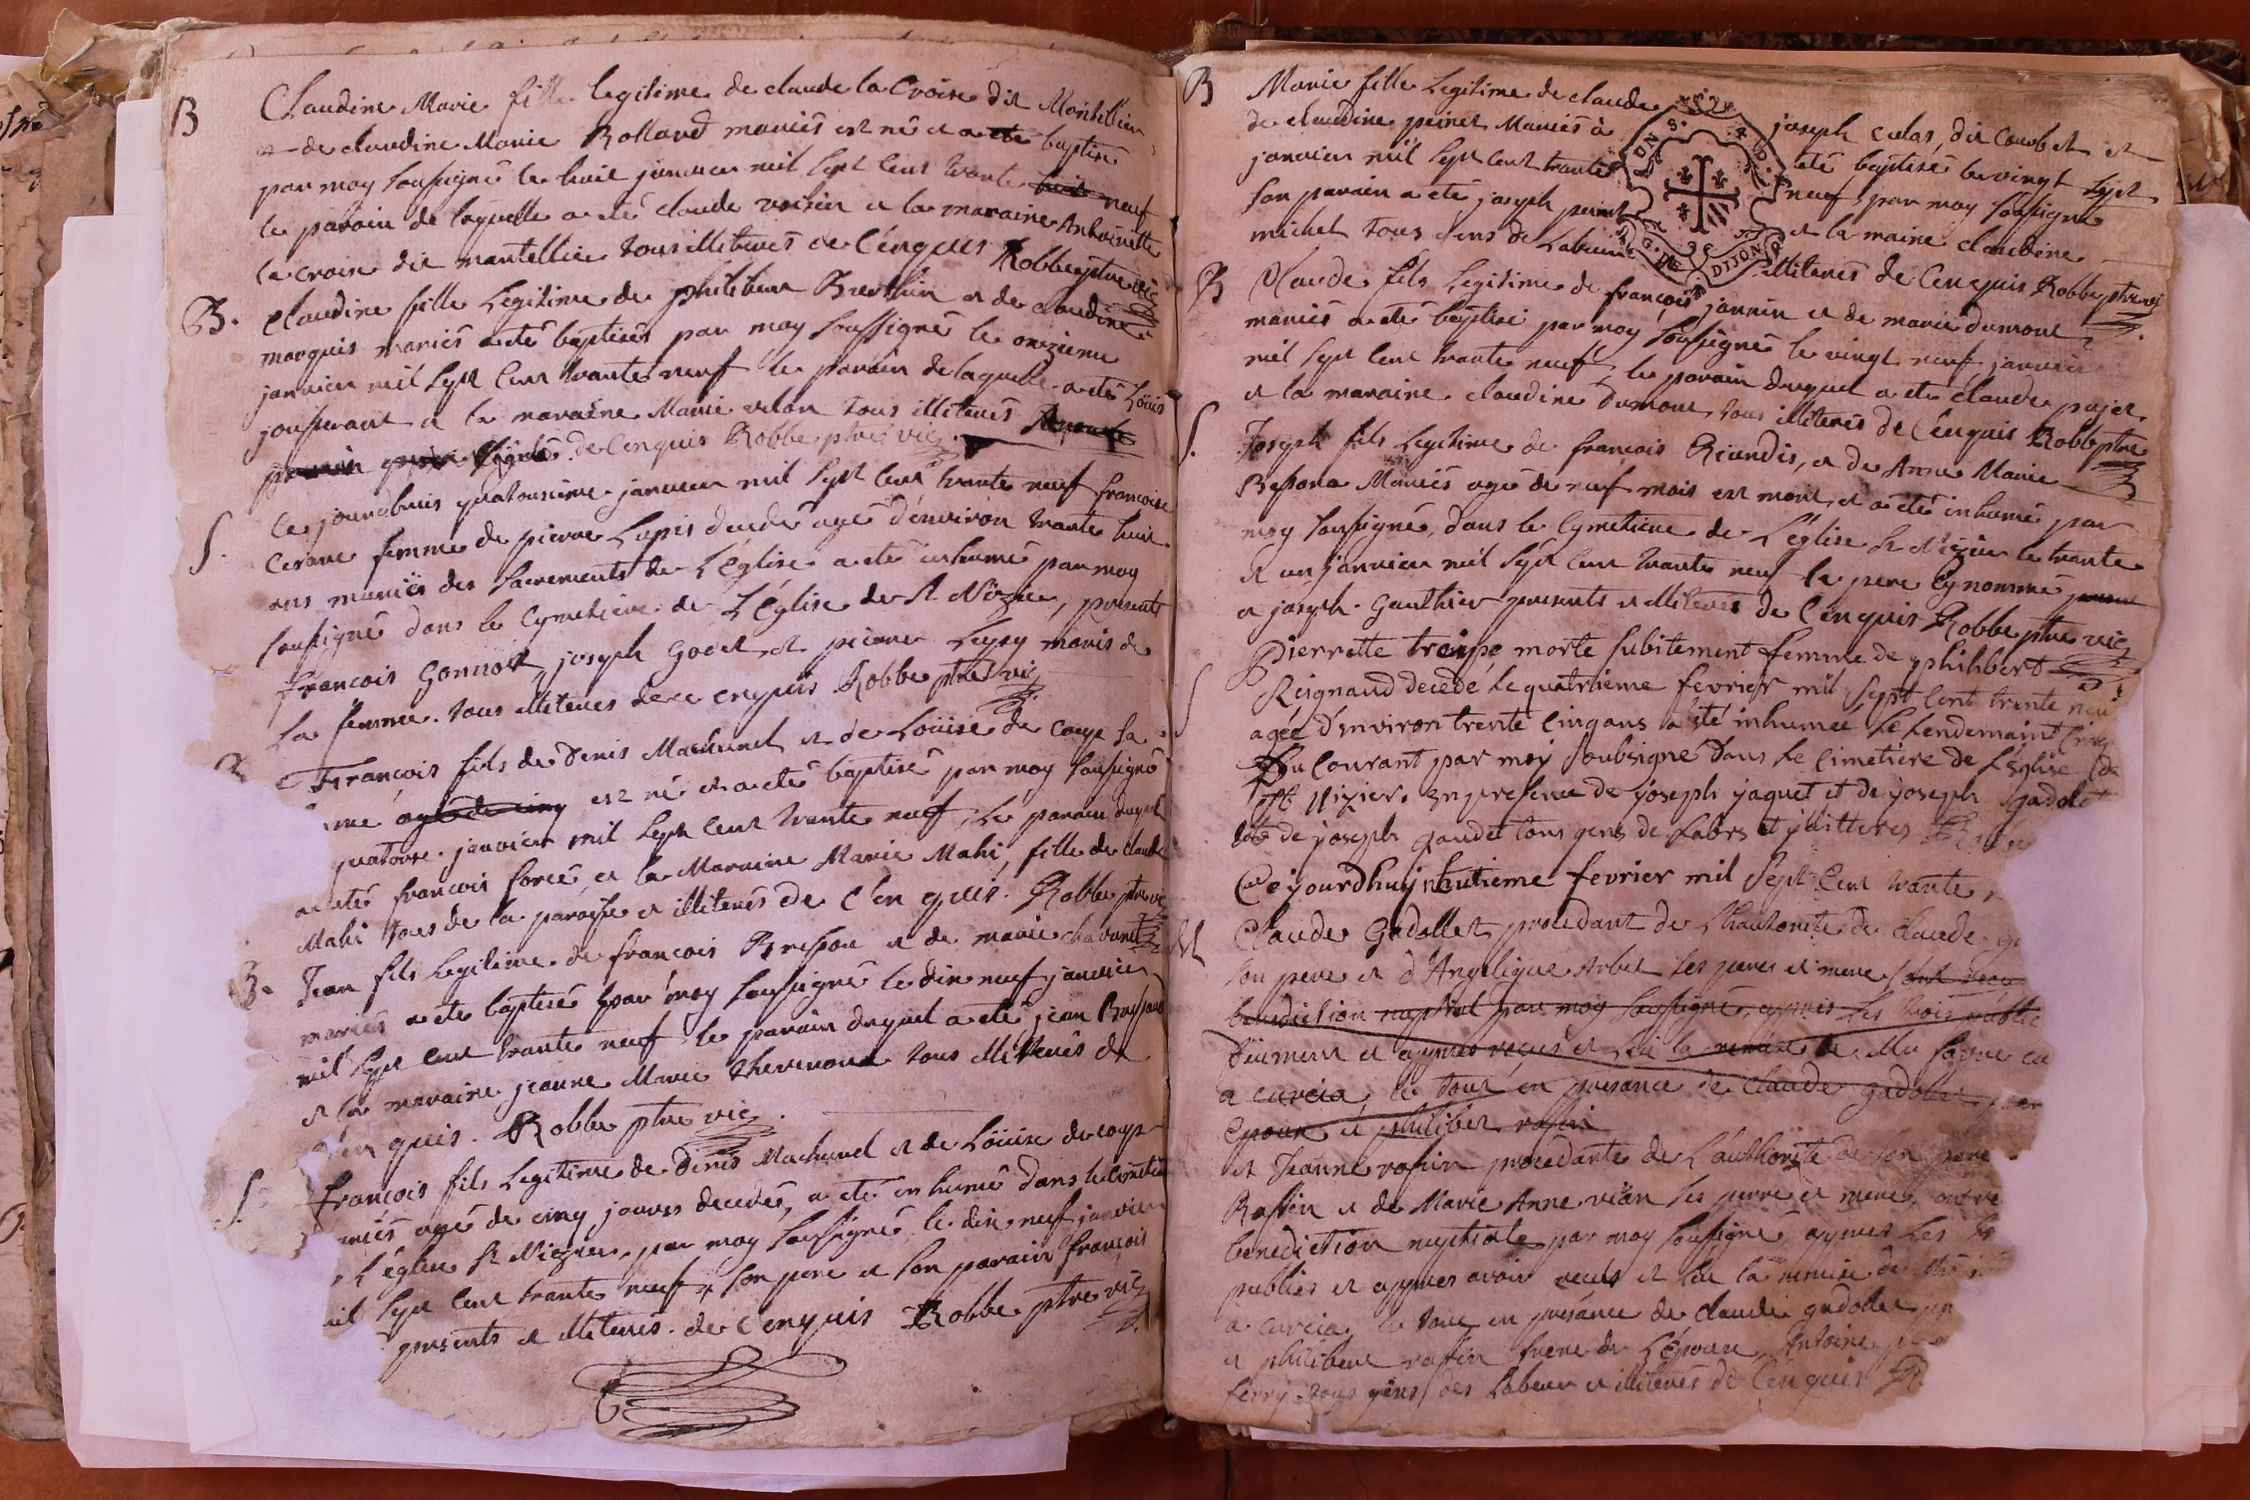 B
Claudine Marie fille legitime de claude la Croix dit Montellier
et de claudine Marie Rolland mariés est né et a eté baptisé
par moy soussigné le huit janvier mil sept cent trante huit neuf
le parain de laquelle a eté claude voisin et la maraine Antoinette
la croix dit mantellier tous illiterés de Cenquis Robbe ptre vic
B.
Claudine fille Legitime de philibert Berthin et de claudine
marquis mariés a eté baptisés par moy soussigné le onzieme
janvier mil sept cent trante neuf le parain de laquelle a eté Louis
jousserant et la maraine Marie vilon tous illiterés
de Cenquis Robbe ptre vic
S.
Ce jourdhuis quatorsieme janvier mil sept cent trante neuf francoise
femme de pierre Lapis decedé agé d'environ trante huit
ans muniës des sacrements de L'église a eté inhumé par moy
soussigné dans le Cymetiere de L'Eglise de St Nizier, presents
francois Gonnot, joseph Godet et pierre Lapey maris de
La femme. tous illiterés de ce enquis Robbe ptre vic
François fils de Denis Machurel et de Loüise de Coup sa
agé de cinq est né et a eté baptisé par moy soussigné
quatorse janvier mil sept cent trante neuf, Le parain duquel
a eté francois forcé et la Maraine Marie Mahi, fille de claude
Mahi tous de la paroisse et illiterés de C'en quis. Robbe ptre vic
B.
Jean fils Legitime de françois Bresson et de marie chavanet
mariés a eté baptisé par moy soussigné le dix neuf janvier
mil sept cent trante neuf le parain duquel a eté jean Bressand
et la maraine jeanne Marie thevenoux tous illiterés de
C'en quis. Robbe ptre vic
S.
françois fils Legitime de Denis Machurel et de Loüise de coup
mariés agé de cinq jours decedés, a eté inhumé dans le Cimetiere
L'église St Nizier, par moy soussigné le dix neuf janvier
mil sept cent trante neuf son pere et son parain françois
presents et illiterés. de Cenquis Robbe ptre vic
B
Marie fille Legitime de claude joseph colas, dit Courbet et
de claudine peinet Mariés a eté baptisé le vingt sept
janvier mil sept cent trante neuf par moy soussigné
son parain a eté joseph peinet et la maraine claudine
michel tous gens de Labeur illiterés de Cenquis Robbe ptre vic
DIJON
B
Claude fils Legitime de françois jannin et de marie dumont
mariés a eté baptisé par moy soussigné le vingt neuf janvier
mil sept cent trante neuf, le parain duquel a eté claude pujet
et la maraine claudine Dumont, tous illiterés de Cenquis Robbe ptre
S.
Joseph fils Legitime de françois Riondis, et de Anne Marie
Bessona Mariés agé de neuf mois est mort et a eté inhumé par
moy soussigné, dans le Cymetiere de L'église St Nizier le trante
et un janvier mil sept cent trante neuf le pere Cy nommé
et joseph Gaulthier presents et illiterés de Cenquis Robbe ptre vic
S
Pierrette troupe morte subitement femme de philibert
Reignaud decedé le quatrieme fevrier mil sept cent trente neuf
agée d'environ trente cinq ans a été inhumée le Lendemain Cinq
Du Courant par moy soubsigné Dans le Cimetiere de L'église de
St Nizier. En presence de joseph jaquet et de joseph gadolet
de joseph gaudet tous gens de Labrs et
Ce jourdhuy huitieme fevrier mil sept cent trante
M
Claude Gadollet procedant de Lhautorité de Claude
son pere et d'Angelique Arbel ses peres et mere sont
benediction nuptial par moy soussigné, apres les trois public
Deument et apres recus et Lu la remise de Mr
a curcia, le tout en presance de claude gadollet
Epoux et philibert rafin
et Jeanne rafin procedante de L'authorité de son pere
Raffin et de Marie Anne vian ses perre et mere, ont re
benediction nuptiale par moy soussigné apres Les
publiés et apres avoir receus et lu la remise de
a curcia, le tout en presance de claude gadollet
et philibert rafin frere de L'épouse Antoine
ferry tous gens des Labeur et illiterés de C'en quis